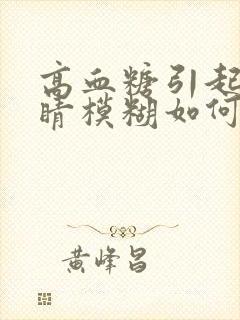 高血糖引起
睛模糊如何
黄峰昌